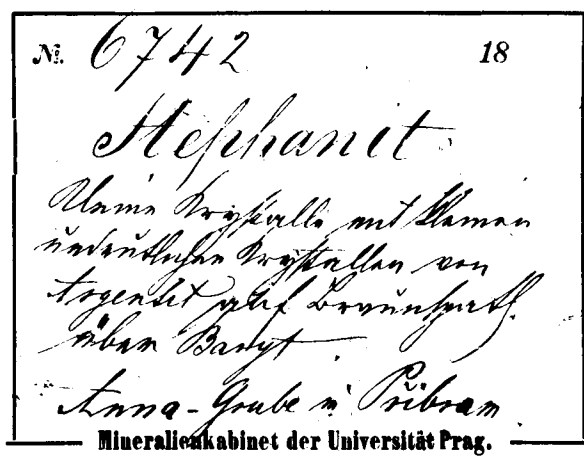 No. 6742 18
Stephanit.
Kleine Krystalle mit kleinen
undeutlichen Krystallen von
Argentit auf Braunspath.
über Baryt.
Anna-Grube in Přibram
Mineralienkabinet der Universität Prag.